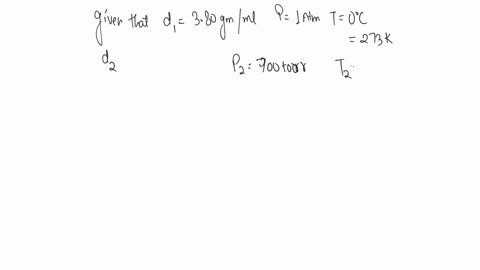 given that d₁ = 3.80 gm/ml P = 1 Atm T = 0°C
= 273 K
d₂ P₂ = 700 torr T₂